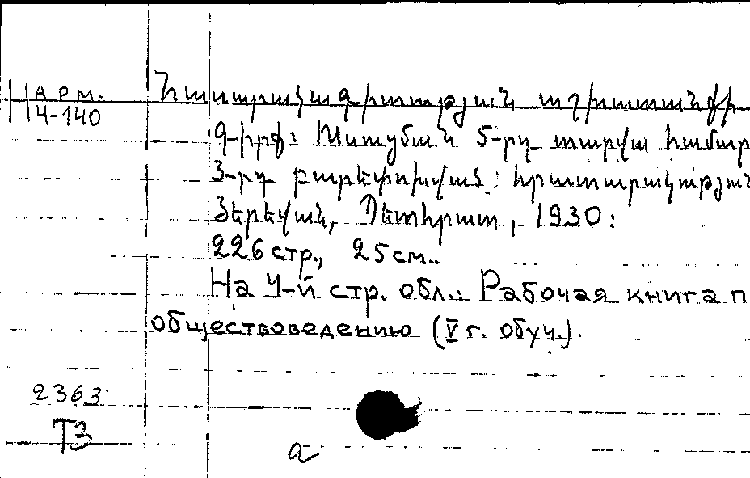 АРМ.
4-140
Հասարակագիտության աշխատանքի
գիրք: Ուսուցման 5-րդ տարվա համար
3-րդ բարեփոխված հրատարակություն
Յերեվան, Պետհրատ, 1930:
226 стр., 25 см.
На 4-й стр. обл.: Рабочая книга п
обществоведению (V г. обуч.).
2363
Т3
а